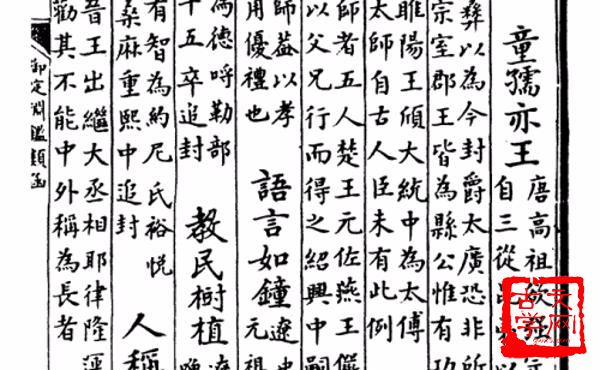 童孺亦王
唐高祖欲
自三從
彝以為今封爵太廣恐非所
宗室郡王皆為縣公惟有功
睢陽王頎大統中為太傅
太師自古人臣未有此例
師者五人楚王元佐燕王儼
以父兄行而得之紹興中嗣
師益以孝
用優禮也
語言如鐘
遼史
元祖
為德呼勒部
十五卒追封
教民樹植
有智為約尼氏裕悦
桑麻重熙中追封
人稱
晉王出繼大丞相耶律隆
勸其不能中外稱為長者
御定淵鑑類函
古文学网